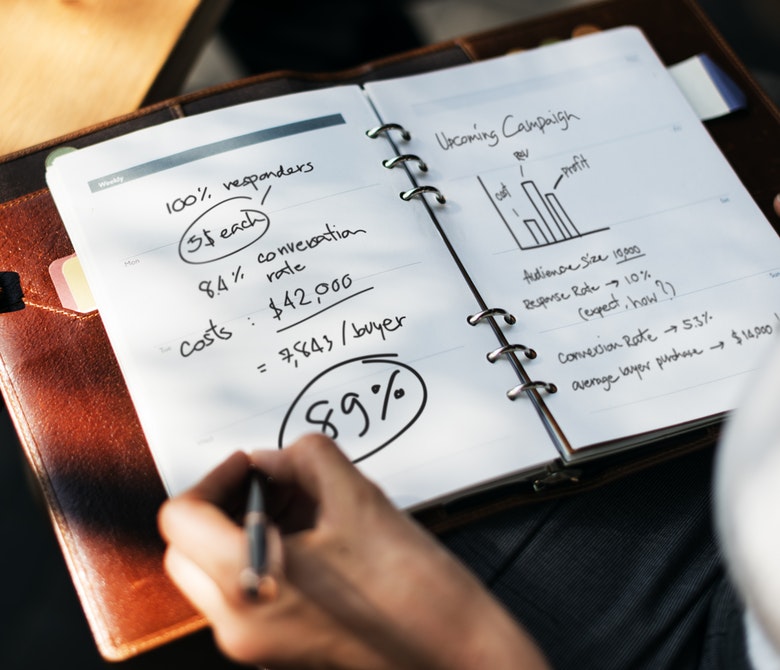 Weekly
100% responders
5$ each
8.4% conversation
rate
costs : $42,000
= 7,843 / buyer
89%
Mon
Upcoming Campaign
cost
REV
profit
Audience Size 10,000
Response Rate → 10%
(expect, how?)
Conversion Rate → 5.3%
average buyer purchase → $14,000